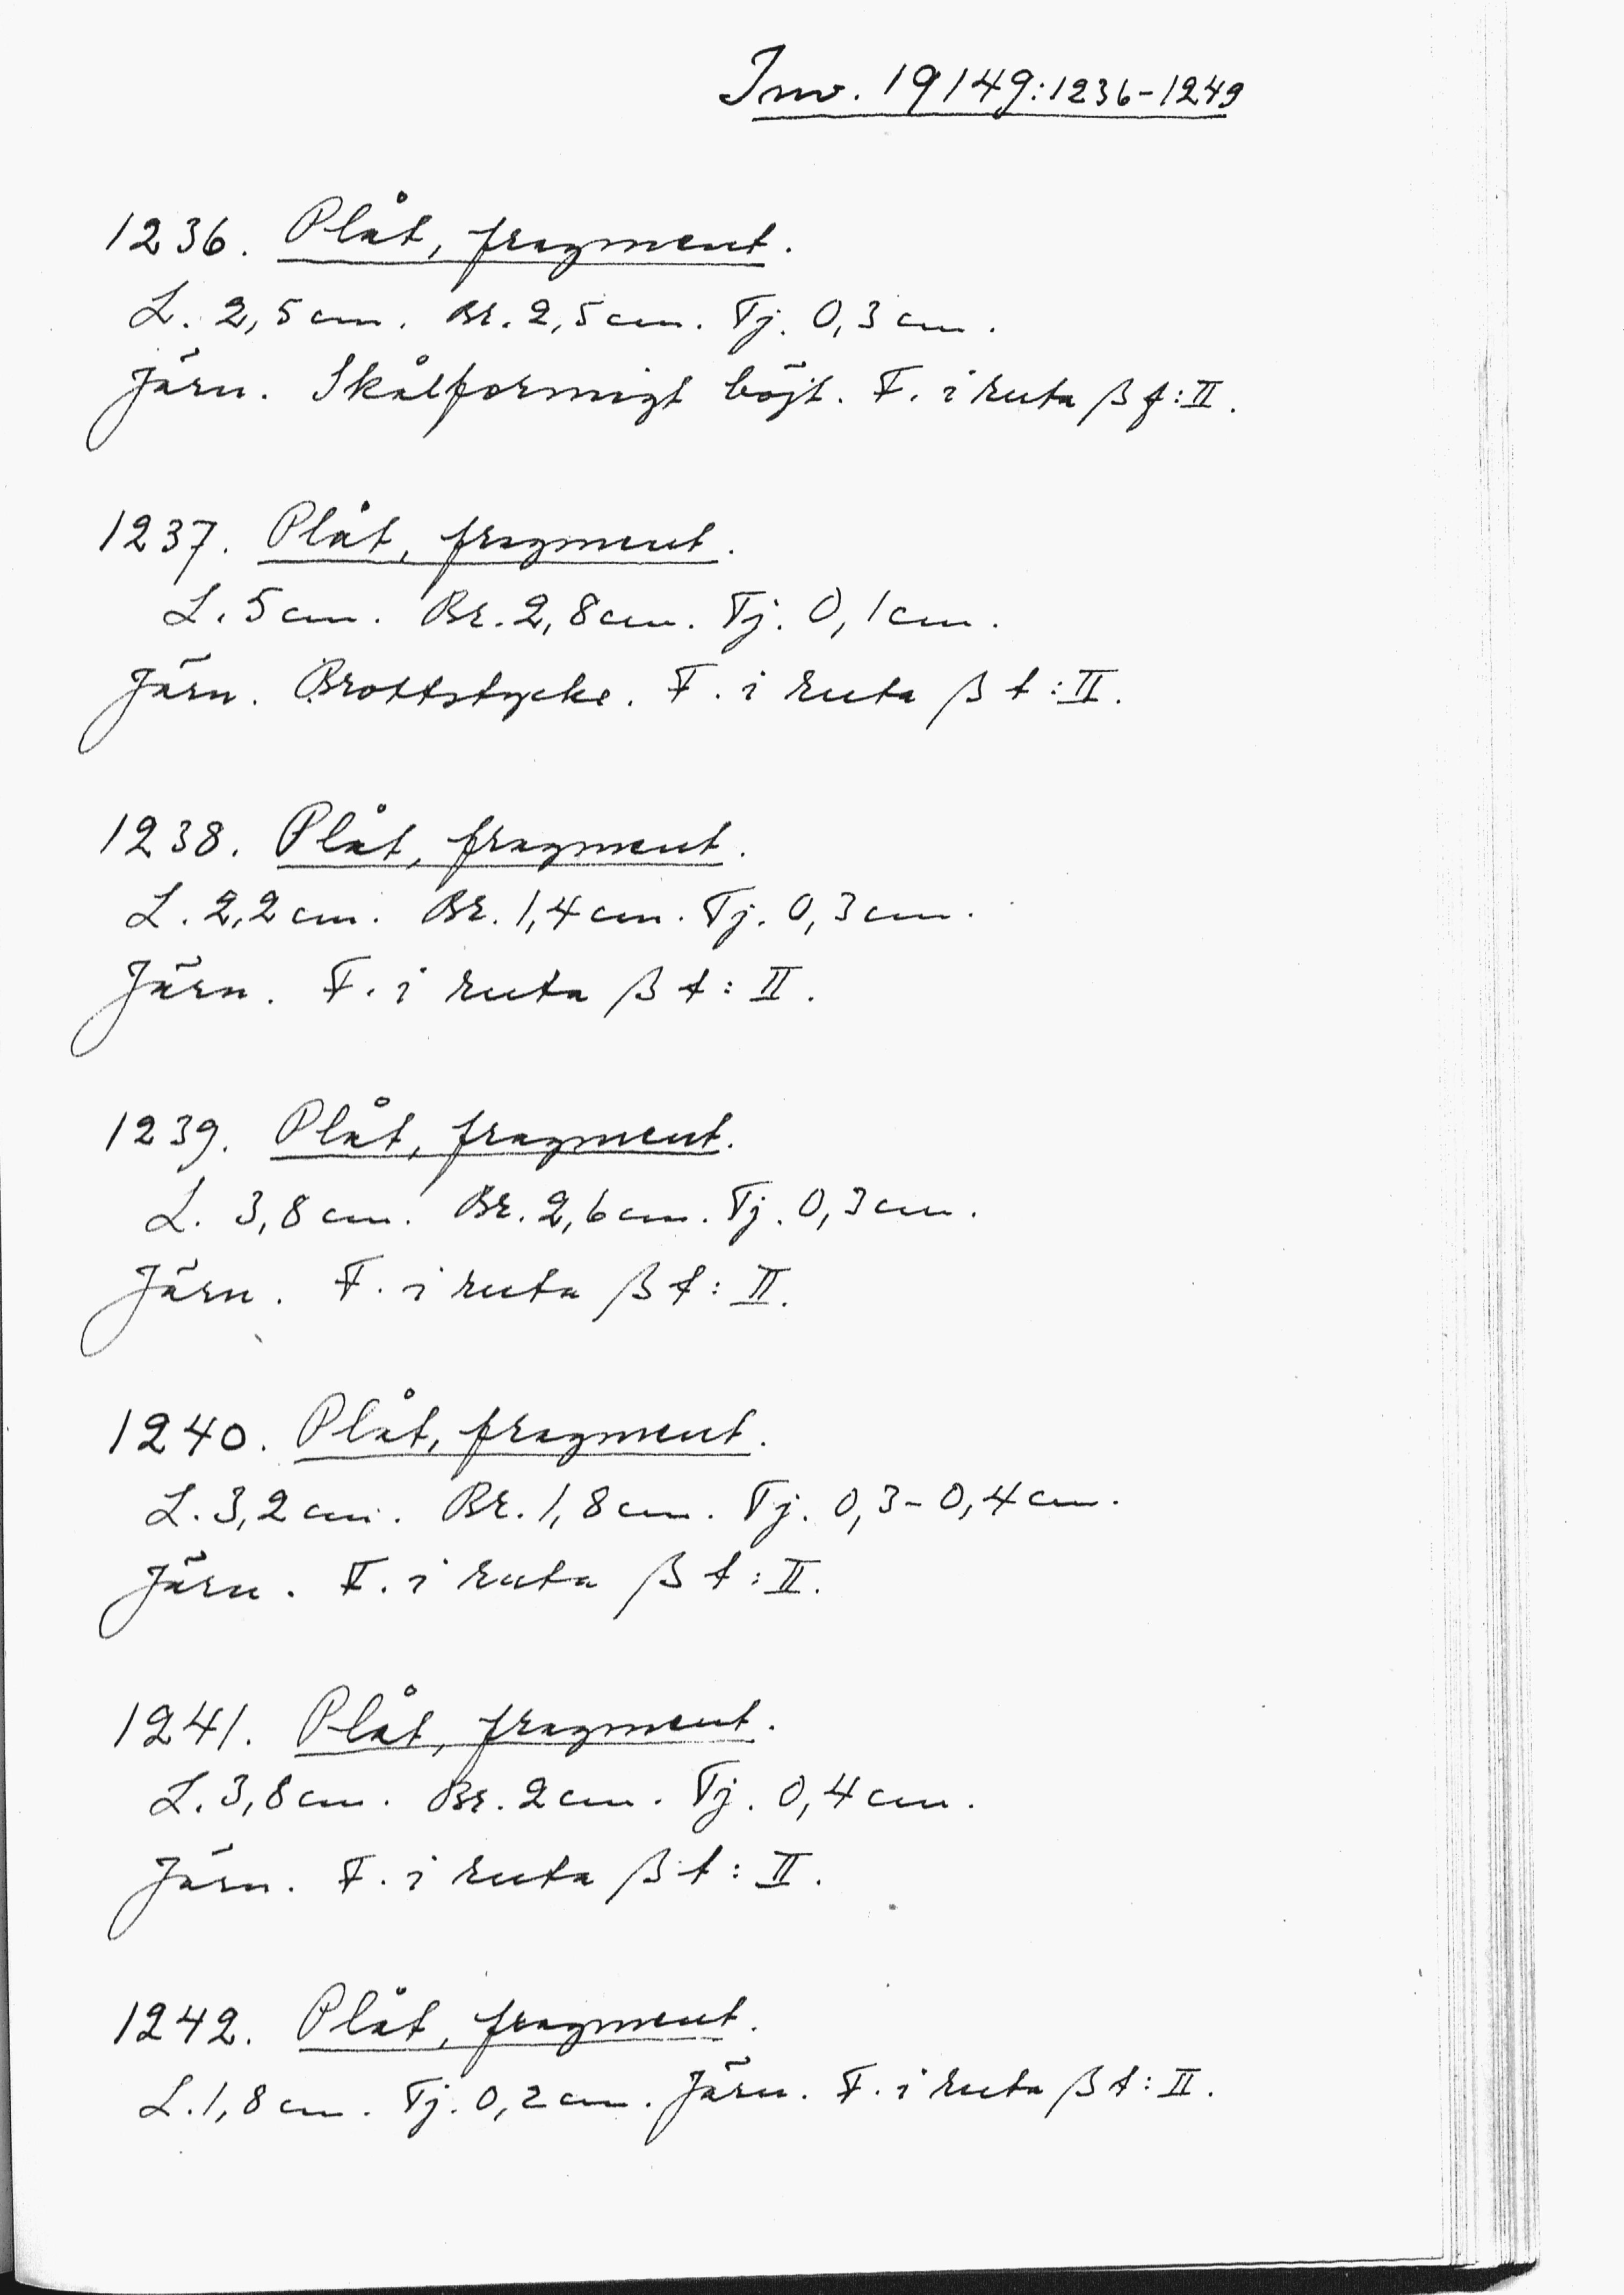 Inv. 19149:1236-1249
1236. Plåt, fragment.
L. 2,5 cm. Br. 2,5 cm. Tj. 0,3 cm.
Järn. Skålformigt böjt. F. i ruta β f:II.
1237. Plåt, fragment.
L. 5 cm. Br. 2,8 cm. Tj. 0,1 cm.
Järn. Brottstycke. F. i ruta β t:II.
1238. Plåt, fragment.
L. 2,2 cm. Br. 1,4 cm. Tj. 0,3 cm.
Järn. F. i ruta β t: II.
1239. Plåt, fragment.
L. 3,8 cm. Br. 2,6 cm. Tj. 0,3 cm.
Järn. F. i ruta β t: II.
1240. Plåt, fragment.
L. 3,2 cm. Br. 1,8 cm. Tj. 0,3-0,4 cm.
Järn. F. i ruta β t: II.
1241. Plåt, fragment.
L. 3,8 cm. Br. 2 cm. Tj. 0,4 cm.
Järn. F. i ruta β t: II.
1242. Plåt, fragment.
L. 1,8 cm. Tj. 0,2 cm. Järn. F. i ruta β t: II.